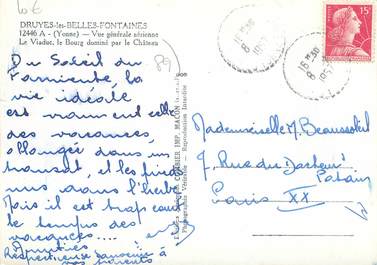 DRUYES-les-BELLES-FONTAINES
12446 A - (Yonne) — Vue générale aérienne
Le Viaduc, le Bourg dominé par le Château
Du Soleil du
Farniente, la
vie idéale
est vraiment celle
des vacances,
allongée dans un
transat, et les pieds
nus dans l'herbe
Mais il est trop court
le temps des
vacances....
Amitiés
Respectueux souvenir à
vos parents
89
IMP. MACON
Photographie Véritable - Reproduction Interdite
15F
16 H 30
8
16 H 30
8
Mademoiselle M. Beausoleil
7 Rue du Docteur
Paris XX